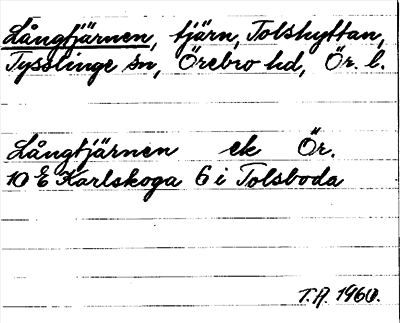 Långtjärnen, tjärn, Tolshyttan,
Tysslinge sn, Örebro hd, Ör. l.
Långtjärnen ek Ör.
10 E Karlskoga 6 i Tolsboda
T.A. 1960.